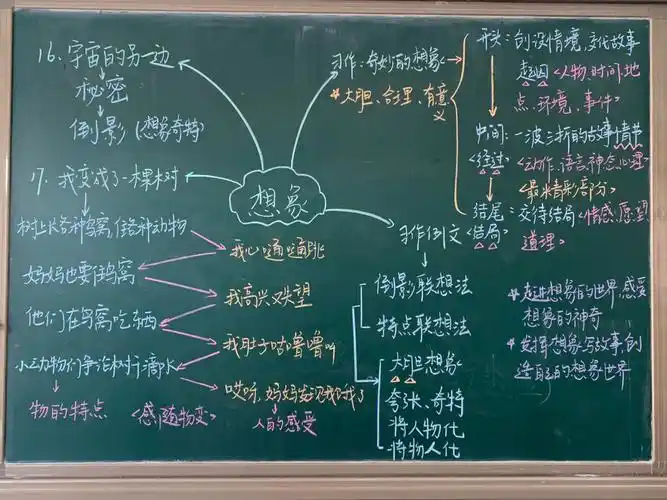 16. 宇宙的另一边
秘密
倒影(想象奇特)
17. 我变成了一棵树
树上长各种鸟窝,住各种动物
妈妈也要住鸟窝
他们在鸟窝吃东西
小动物们争论树干滴水
物的特点
<感随物变>
我心嗵嗵跳
我高兴又失望
我肚子咕噜噜叫
哎呀,妈妈发现我
人的感受
想象
习作:奇妙的想象
*大胆、合理、有意义
开头:创设情境,交代故事
起因<人物、时间、地
点、环境、事件>
中间:一波三折的故事情节
<经过><动作、语言、神态、心理>
<最精彩部分>
结尾:交待结局<情感、愿望
<结局>道理>
习作例文
倒影联想法
特点联想法
大胆想象
夸张、奇特
将人物化
将物人化
*走进想象的世界,感受
想象的神奇
*发挥想象写故事,创
造自己的想象世界